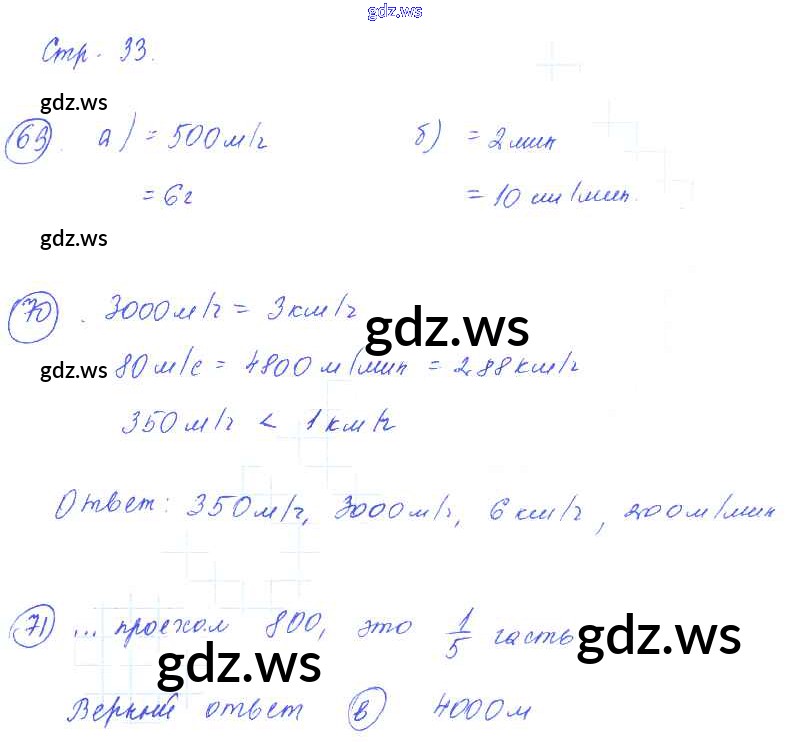 gdz.ws
Стр. 33.
gdz.ws
69. а) = 500м/ч б) = 2мин
= 6ч = 10 см/мин.
gdz.ws
70. 3000м/ч = 3км/ч
gdz.ws
gdz.ws 80м/с = 4800м/мин = 288км/ч
350м/ч < 1км/ч
Ответ: 350м/ч, 3000м/ч, 6км/ч, 200м/мин
71 ... проехал 800, это 1/5 часть
gdz.ws gdz.ws
Верный ответ в 4000м